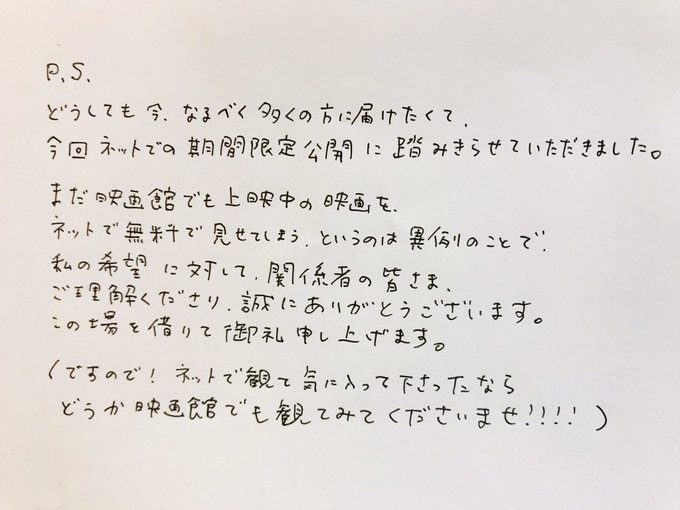 P.S.
どうしても今、なるべく多くの方に届けたくて、
今回ネットでの期間限定公開に踏みきらせていただきました。
まだ映画館でも上映中の映画を、
ネットで無料で見せてしまう、というのは異例のことで、
私の希望に対して、関係者の皆さま、
ご理解くださり、誠にありがとうございます。
この場を借りて御礼申し上げます。
(ですので！ネットで観て気に入って下さったなら
どうか映画館でも観てみてくださいませ!!!!)